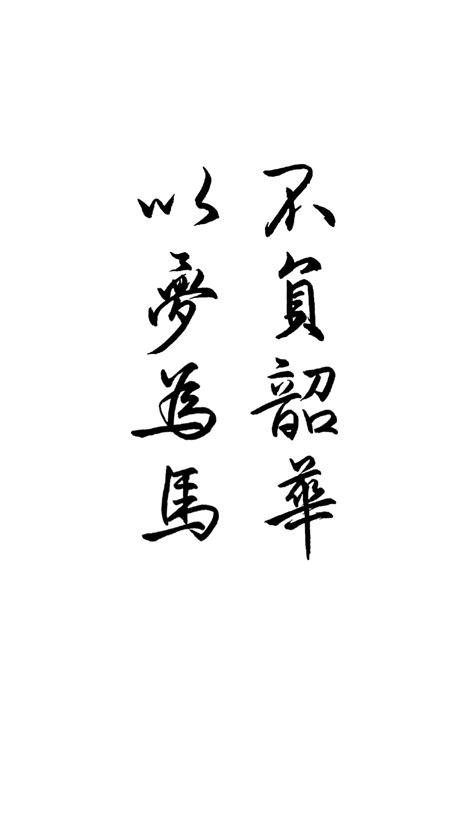 不負韶華
以夢為馬